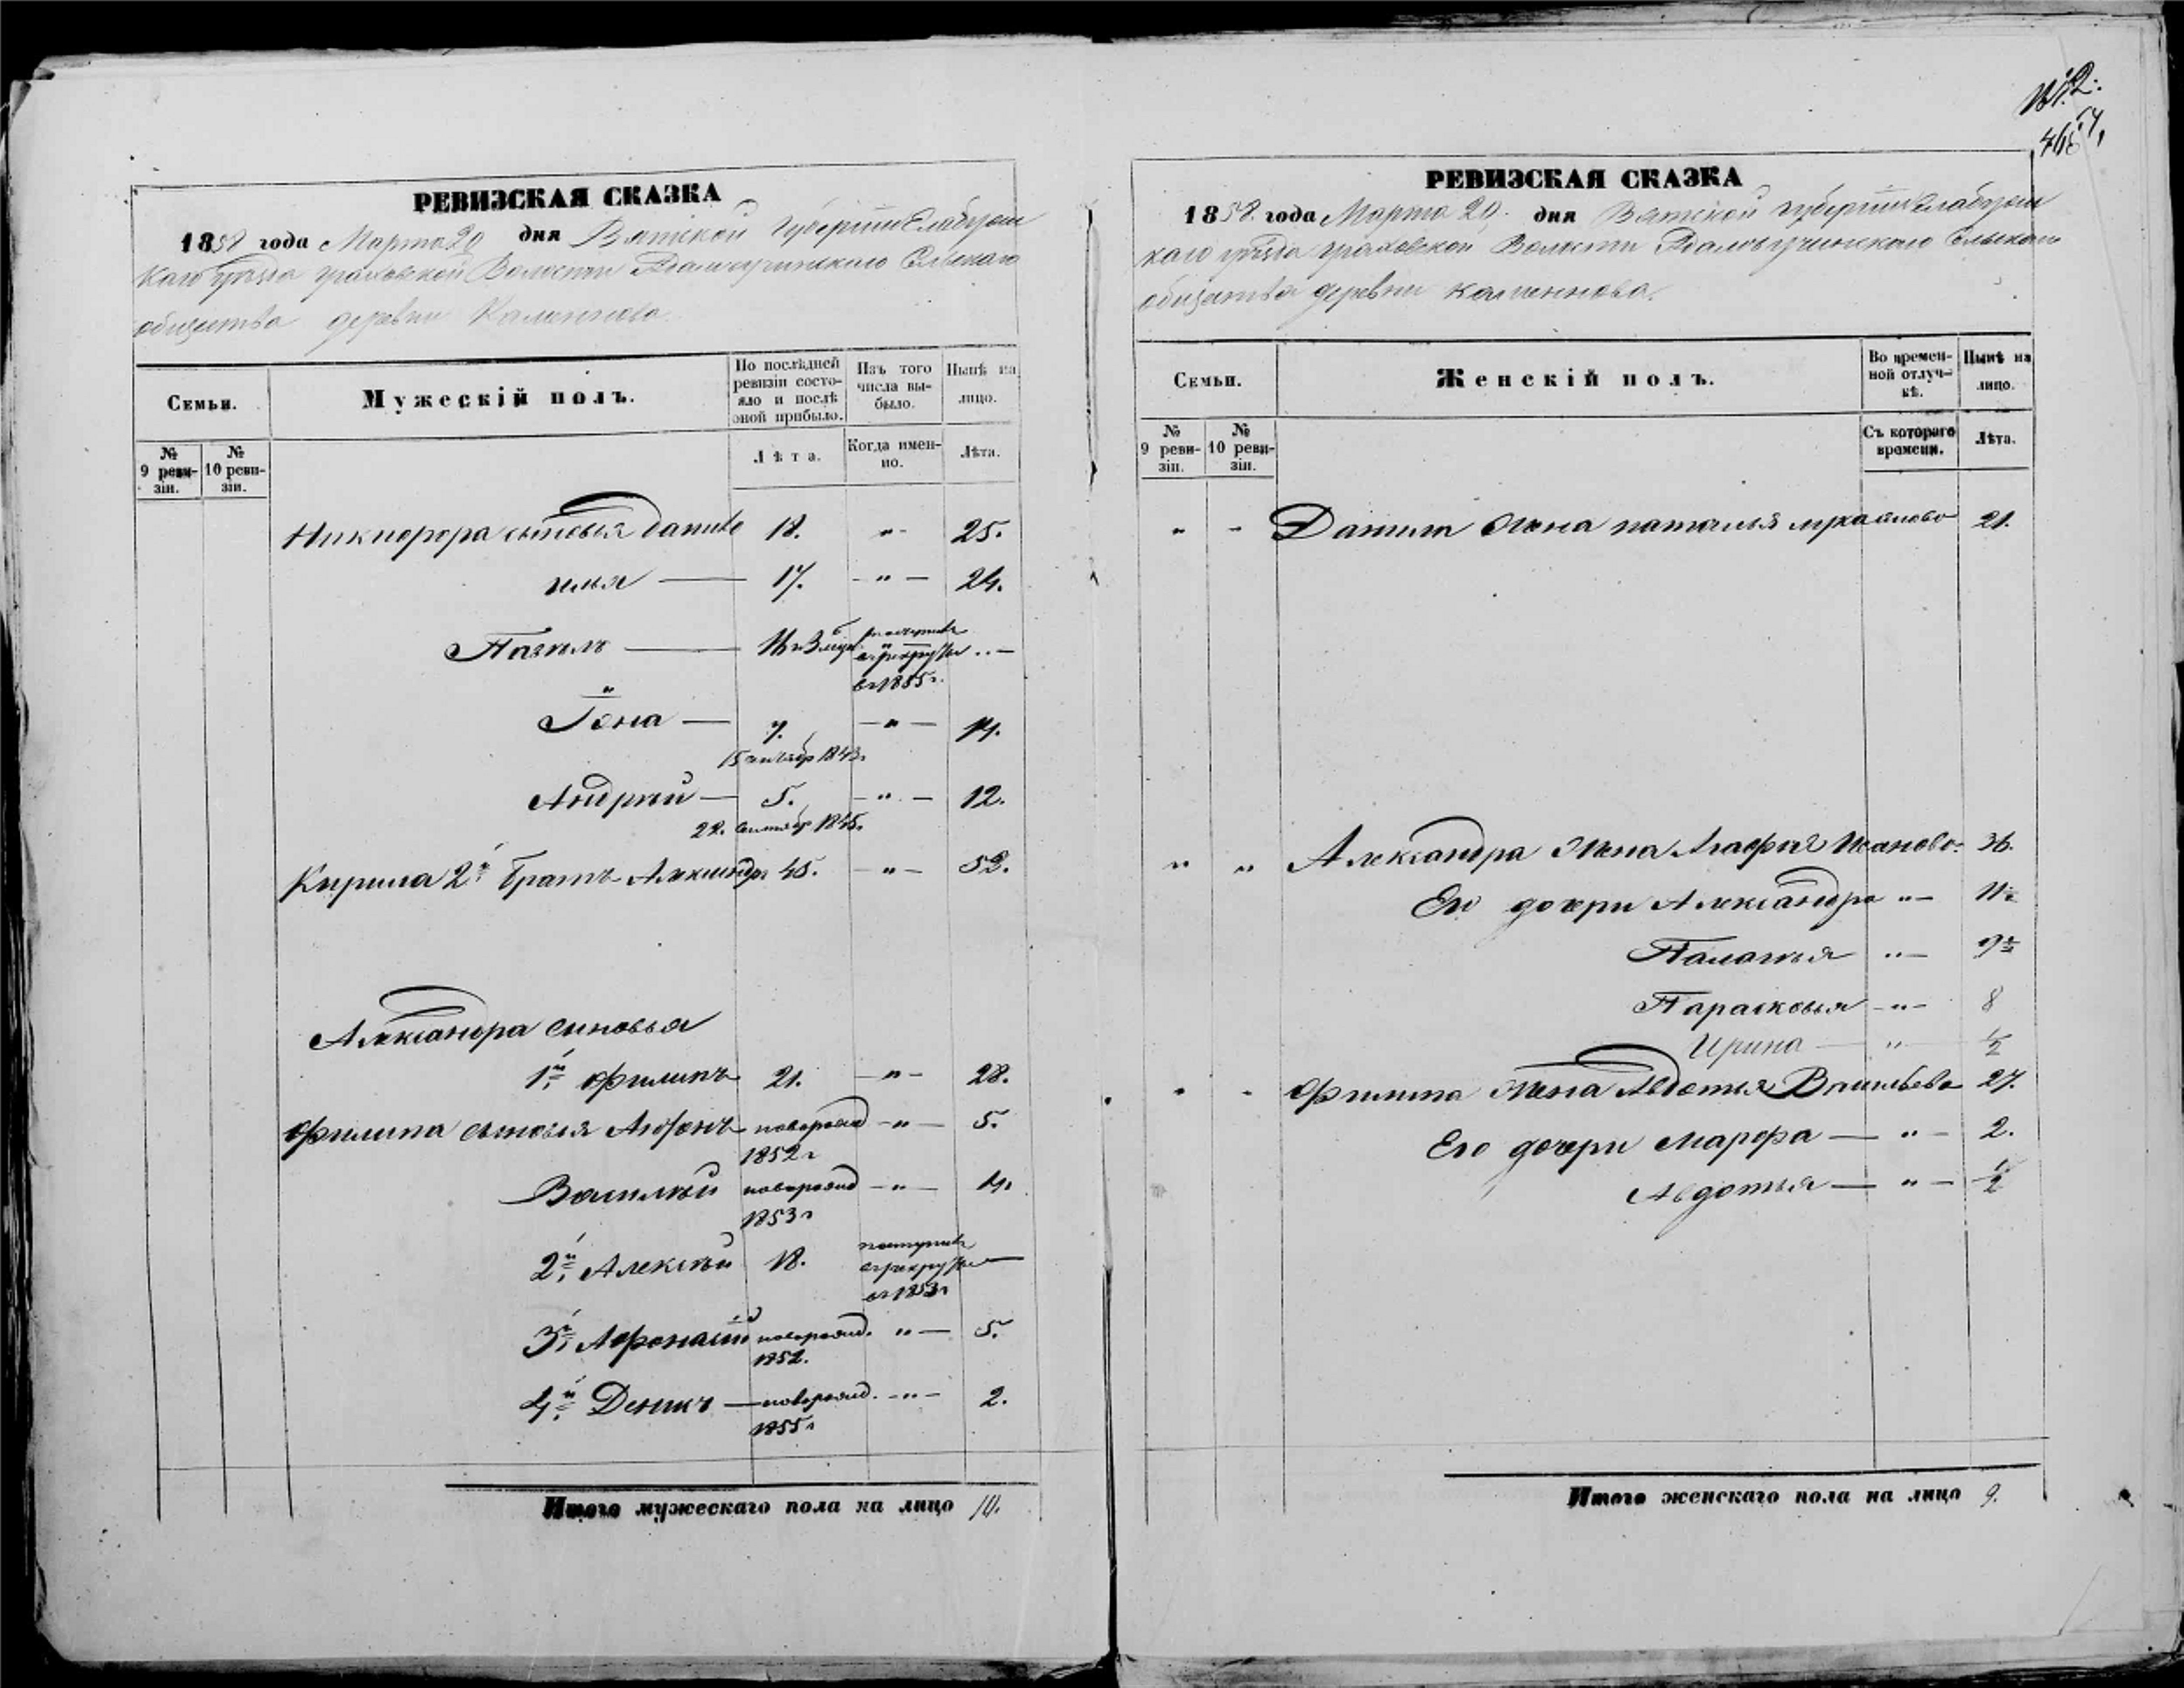 РЕВИЗСКАЯ СКАЗКА
1858 года Марта 20 дня Вятской губернии Елабужс
каго уѣзда граховской Волости Сельскаго
общества деревни Каменнова
Семьи.
Мужескій полъ.
По послѣдней ревизіи состояло и послѣ оной прибыло.
Изъ того числа выбыло.
Нынѣ на лицо.
№ 9 ревизіи.
№ 10 ревизіи.
Лѣта.
Когда именно.
Лѣта.
Никифора сыновья Данило 18. „ 25.
илья — 17. - „ — 24.
Павелъ — поступилъ в рекруты в 1855 г. „ —
Iона — 7. — „ — 14.
Андрей — 5. — „ — 12.
Кирила 2й братъ Александръ 45. — „ — 52.
Александра сыновья
1й Филипъ 21. — „ — 28.
Филипа сыновья новорожд — „ — 5.
1852 г
Василей новорожд — „ — 4.
1853 г
2й Алексѣй 18. поступилъ в рекруты в 1853 г —
3й Афонасий новорожд. „ — 5.
1852.
4й Денисъ — новорожд. - „ — 2.
1855 г
Итого мужескаго пола на лицо 10.
РЕВИЗСКАЯ СКАЗКА
1858 года Марта 20, дня Вятской губернии Елабужс
каго уѣзда граховской Волости Сельскаго
общества деревни каменнова.
Семьи.
Женскій полъ.
Во временной отлучкѣ.
Нынѣ на лицо.
№ 9 ревизіи.
№ 10 ревизіи.
Съ котораго времени.
Лѣта.
„ „ Данила жена наталья 21.
„ „ Александра жена Агафья Иванова 36.
Его дочери Александра „ — 11
Палагья „ — 9
Парасковья — „ — 8
Ирина — „ ½
„ „ Филипа жена Авдотья Васильева 27.
Его дочери Марфа — „ — 2.
Авдотья — „ — ½
Итого женскаго пола на лицо 9.